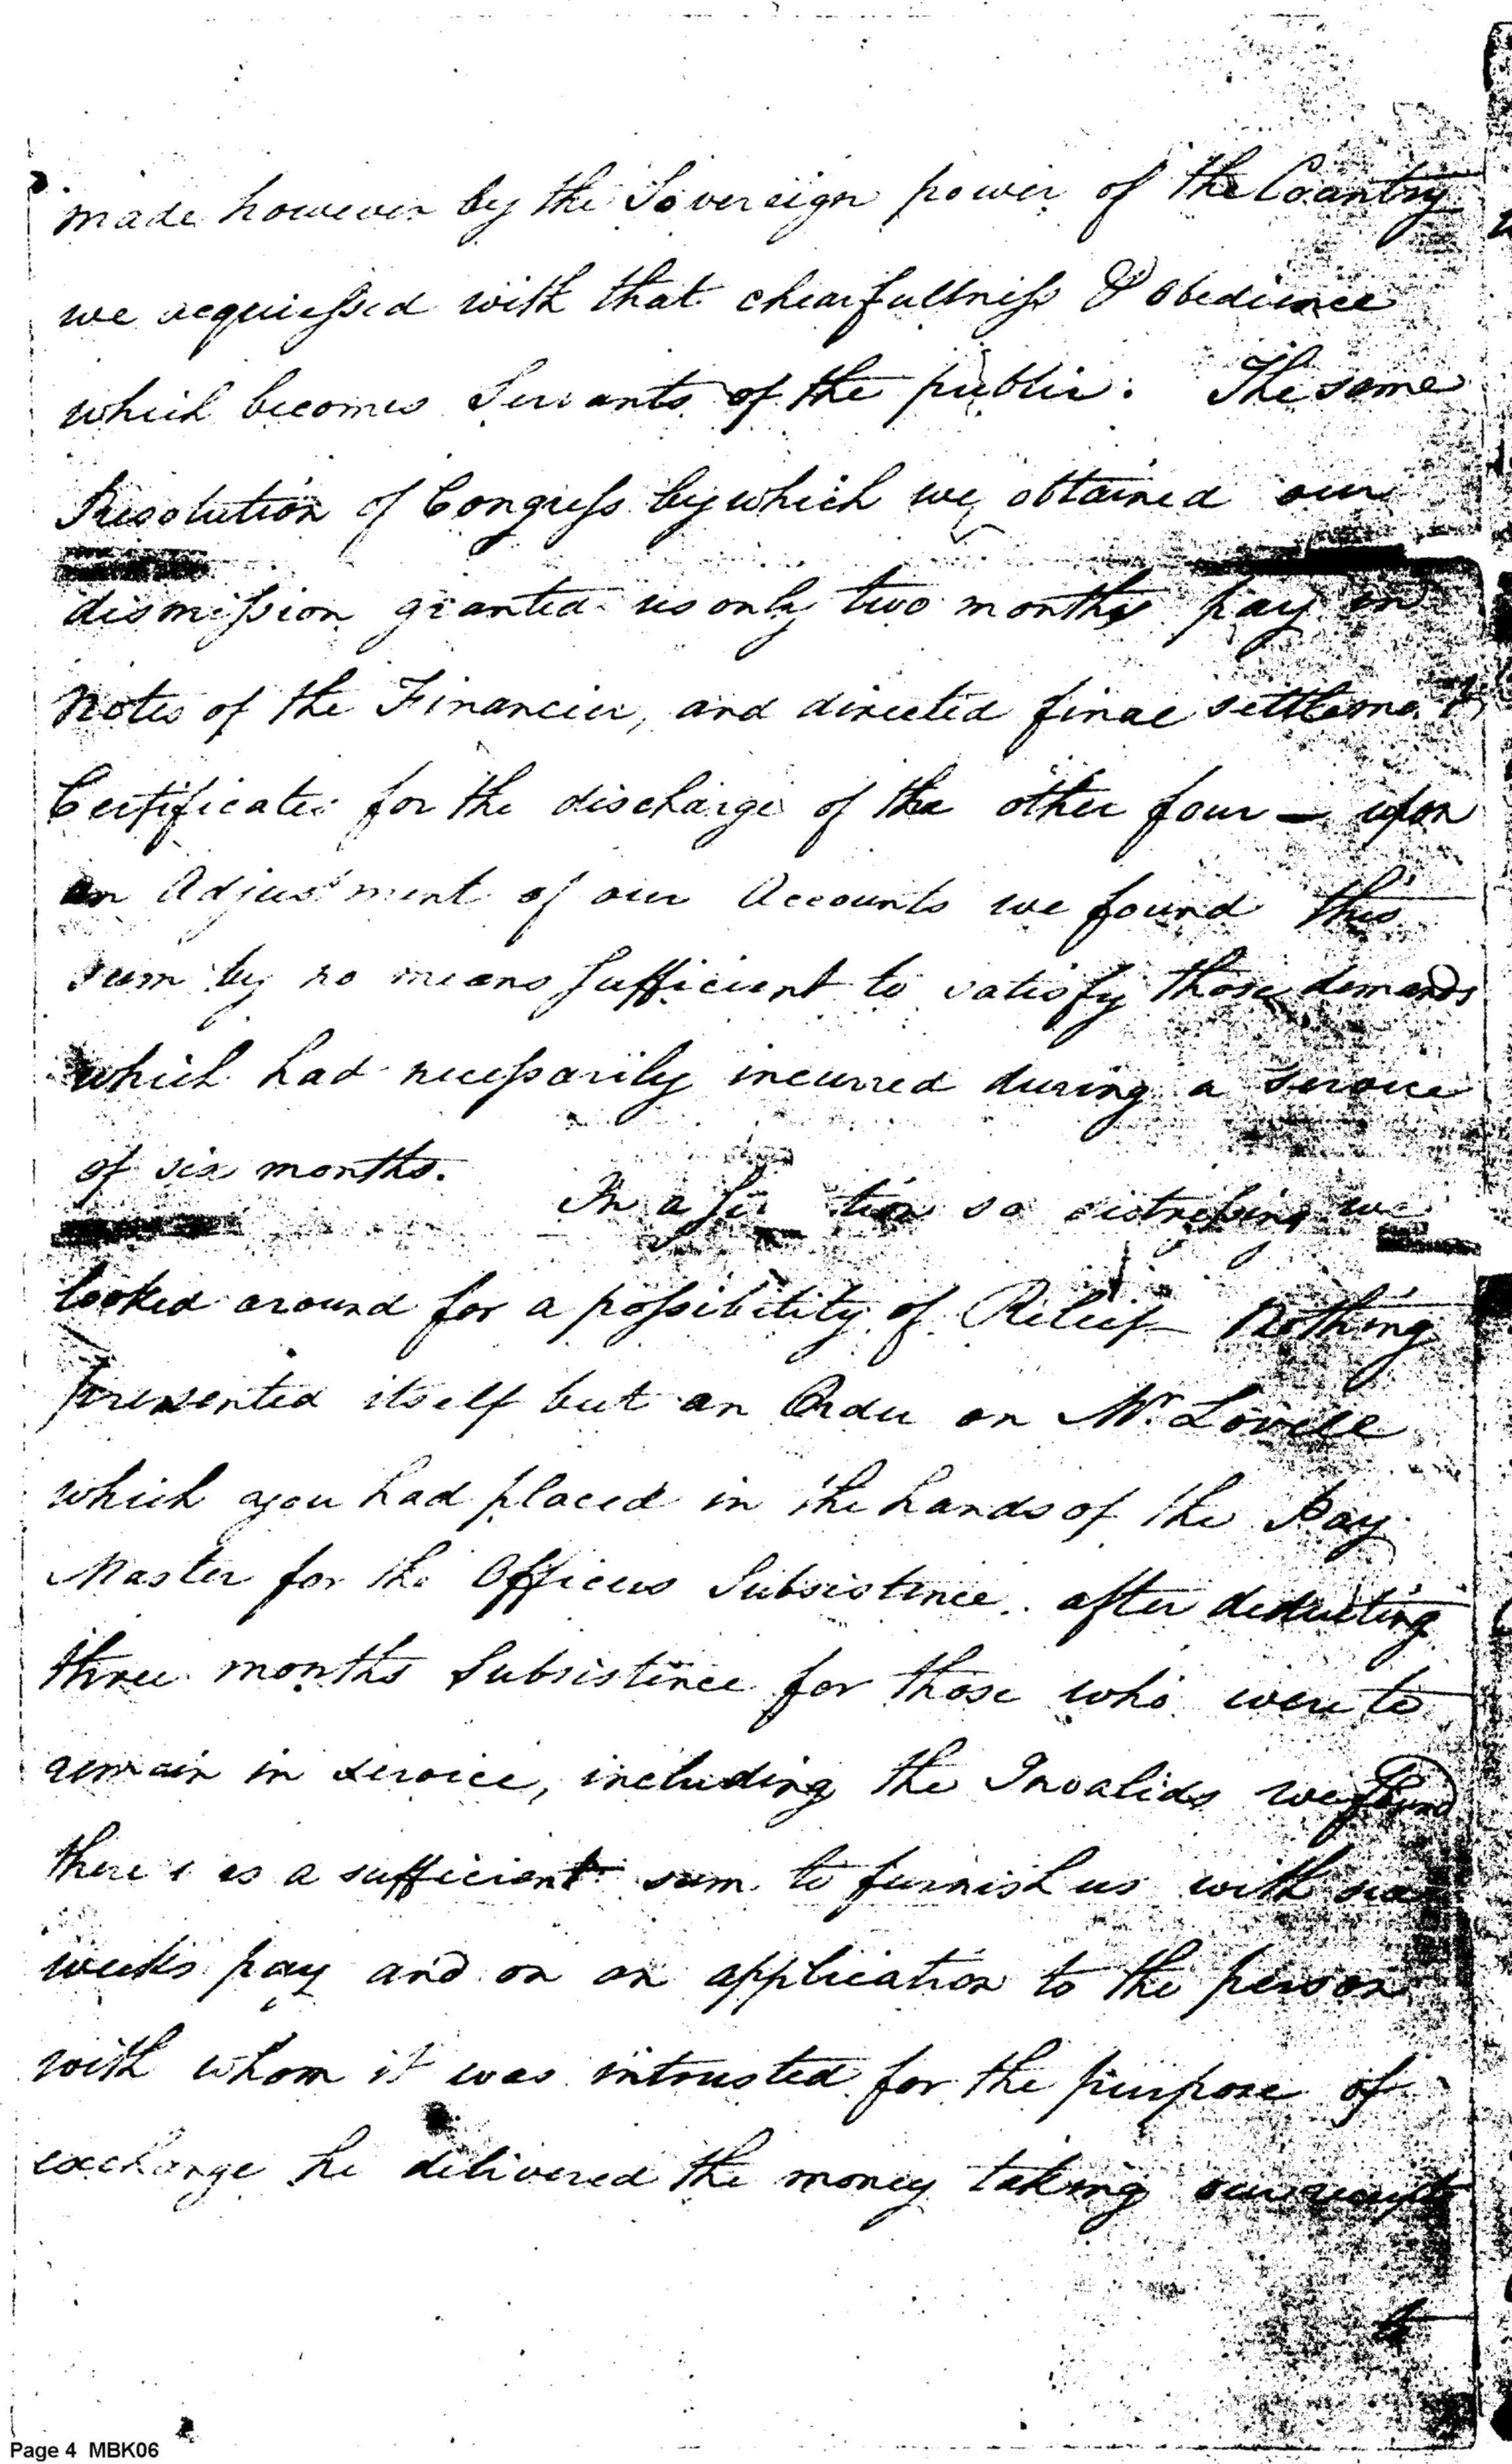 made however by the Sovereign power of the Country
we acquiessed with that chearfullness & obedience
which becomes Servants of the public. The same
Resolution of Congress by which we obtained our
dismission granted us only two months pay in
Notes of the Financier, and directed final settlement
Certificates for the discharge of the other four — upon
an Adjustment of our Accounts we found this
sum by no means sufficient to satisfy those demands
which had necessarily incurred during a service
of six months.
In a tion so distressing we
looked around for a possibility of Relief Nothing
presented itself but an Order on Mr. Lovell
which you had placed in the hands of the Pay
Master for the Officers Subsistence. after deducting
three months Subsistence for those who were to
remain in service, including the Invalids we found
there was a sufficient sum to furnish us with six
weeks pay and on an application to the person
with whom it was intrusted for the purpose of
exchange he delivered the money taking our receipts
Page 4 MBK06